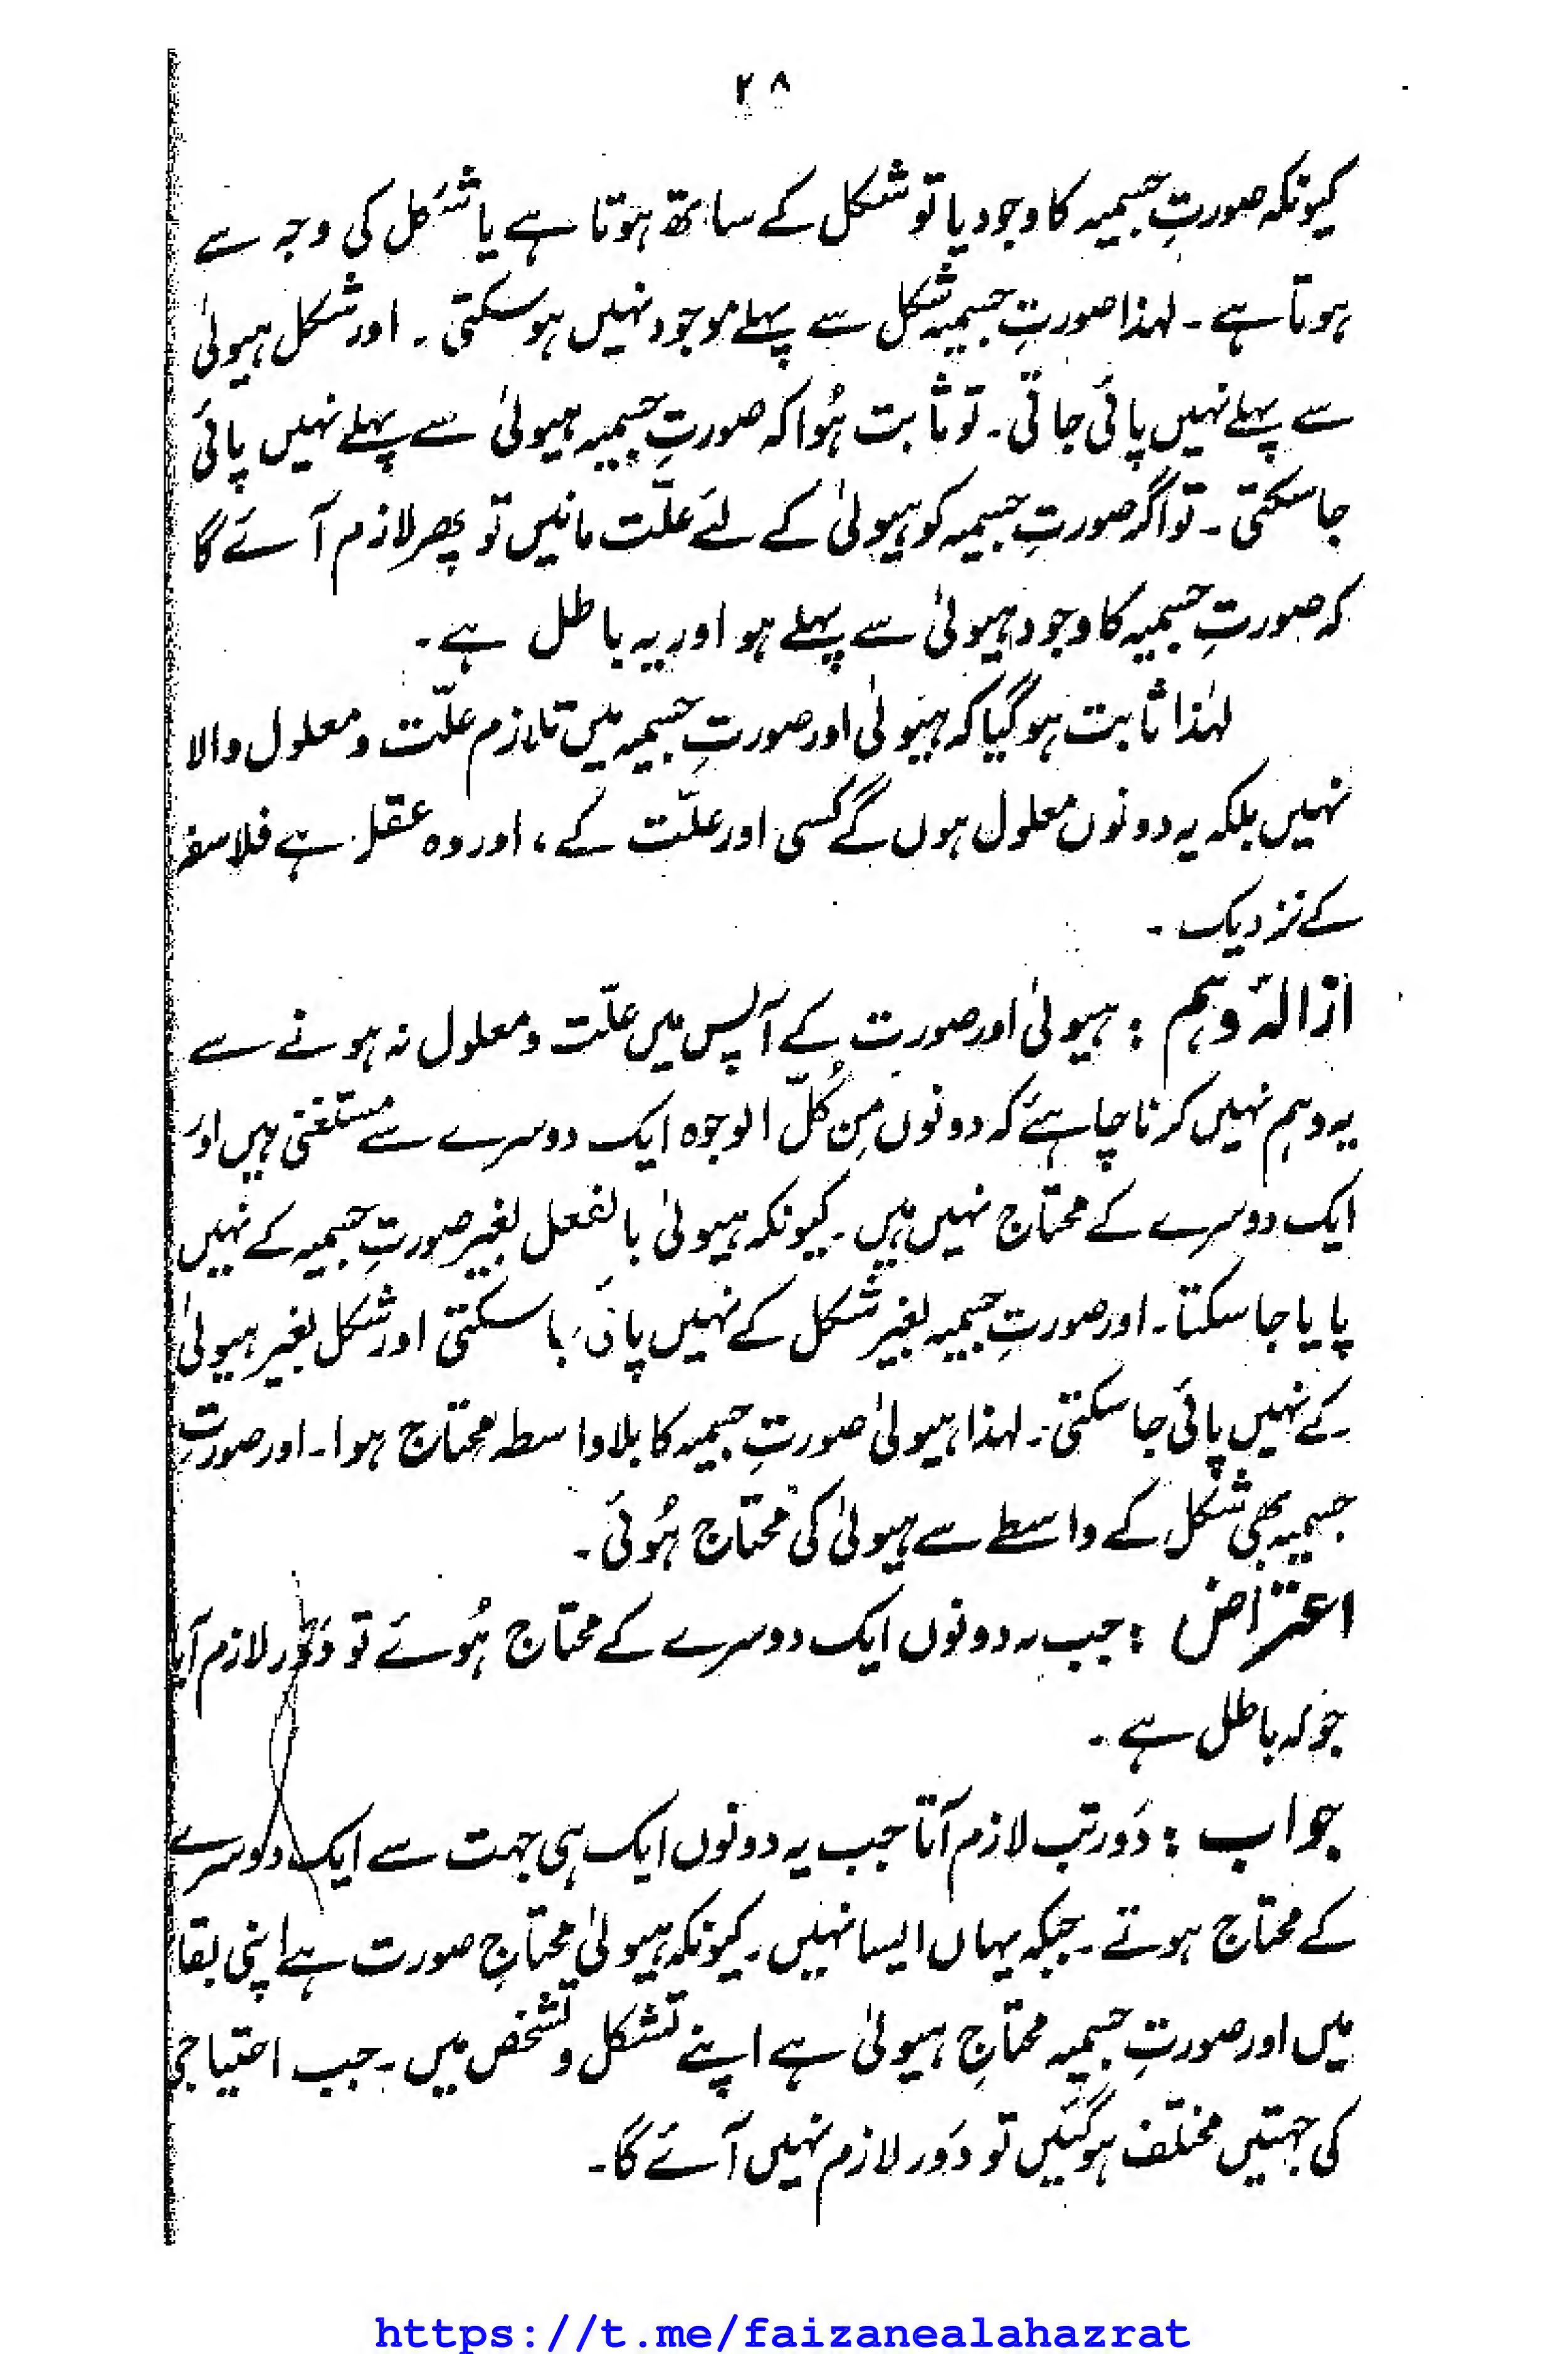 ۲۸
کیونکہ صورتِ جسمیہ کا وجود یا تو شکل کے ساتھ ہوتا ہے یا شکل کی وجہ سے
ہوتا ہے ۔ لہذا صورتِ جسمیہ شکل سے پہلے موجود نہیں ہوسکتی ۔ اور شکل ہیولیٰ
سے پہلے نہیں پائی جاتی ۔ تو ثابت ہُوا کہ صورتِ جسمیہ ہیولیٰ سے پہلے نہیں پائی
جاسکتی ۔ تو اگر صورتِ جسمیہ کو ہیولیٰ کے لئے علّت مانیں تو پھر لازم آئے گا
کہ صورتِ جسمیہ کا وجود ہیولیٰ سے پہلے ہو اور یہ باطل ہے ۔
لہٰذا ثابت ہوگیا کہ ہیولیٰ اور صورتِ جسمیہ میں تلازم علّت و معلول والا
نہیں بلکہ یہ دونوں معلول ہوں گے کسی اور علّت کے ، اور وہ عقل ہے فلاسفہ
کے نزدیک ۔
ازالۂ وہم : ہیولیٰ اور صورت کے آپس میں علّت و معلول نہ ہونے سے
یہ وہم نہیں کرنا چاہئے کہ دونوں مِن کُلّ الوجوہ ایک دوسرے سے مستغنی ہیں اور
ایک دوسرے کے محتاج نہیں ہیں ۔ کیونکہ ہیولیٰ بالفعل بغیر صورتِ جسمیہ کے نہیں
پایا جاسکتا ۔ اور صورتِ جسمیہ بغیر شکل کے نہیں پائی جاسکتی اور شکل بغیر ہیولیٰ
کے نہیں پائی جاسکتی ۔ لہذا ہیولیٰ صورتِ جسمیہ کا بلاواسطہ محتاج ہوا ۔ اور صورتِ
جسمیہ بھی شکل کے واسطے سے ہیولیٰ کی محتاج ہُوئی ۔
اعتراض : جب یہ دونوں ایک دوسرے کے محتاج ہُوئے تو دَور لازم آیا
جو کہ باطل ہے ۔
جواب : دَور تب لازم آتا جب یہ دونوں ایک ہی جہت سے ایک دوسرے
کے محتاج ہوتے ۔ جبکہ یہاں ایسا نہیں ۔ کیونکہ ہیولیٰ محتاجِ صورت ہے اپنی بقا
میں اور صورتِ جسمیہ محتاجِ ہیولیٰ ہے اپنے تشکل و تشخص میں ۔ جب احتیاجی
کی جہتیں مختلف ہوگئیں تو دَور لازم نہیں آئے گا ۔
https://t.me/faizanealahazrat